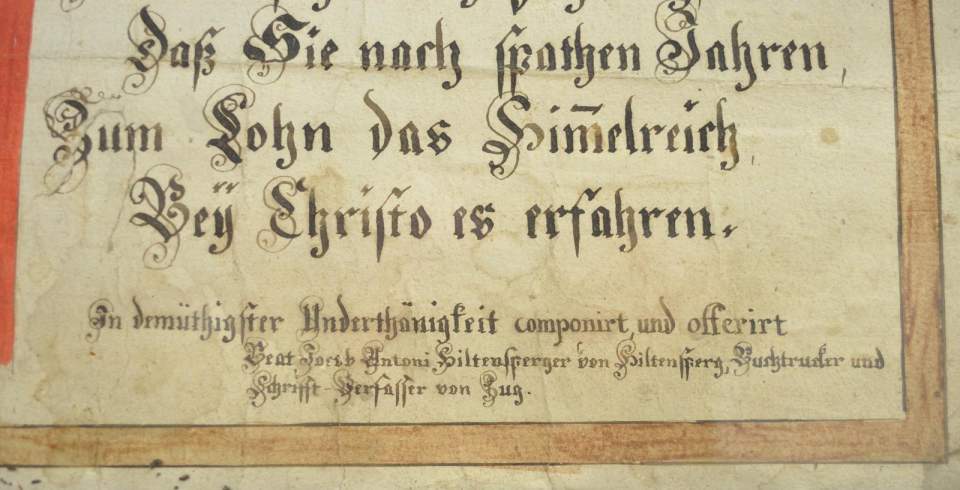 Daß Sie nach spathen Jahren,
Zum Lohn das Him̅elreich,
Beÿ Christo es erfahren.
In demüthigster Underthänigkeit componirt, und offerirt
Beat Jacob Antoni Hiltensperger von Hiltensperg, Buchtrucker und
Schrifft-Verfasser von Zug.